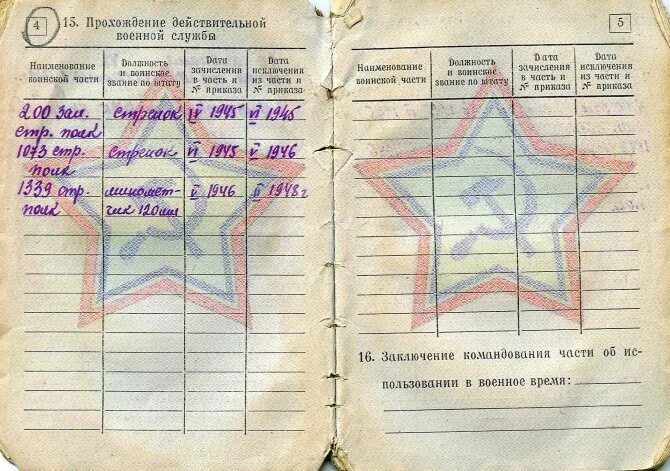 4
13. Прохождение действительной
военной службы
Наименование
воинской части
Должность
и воинское
звание по штату
Дата
зачисления
в часть и
№ приказа
Дата
исключения
из части и
№ приказа
200 Зап.
стр. полк
стрелок
IV 1945
VI 1945
1073 стр.
полк
стрелок
VI 1945
V 1946
1339 стр.
полк
миномет-
чик 120мм
V 1946
II 1948 г
5
Наименование
воинской части
Должность
и воинское
звание по штату
Дата
зачисления
в часть и
№ приказа
Дата
исключения
из части и
№ приказа
16. Заключение командования части об ис-
пользовании в военное время: